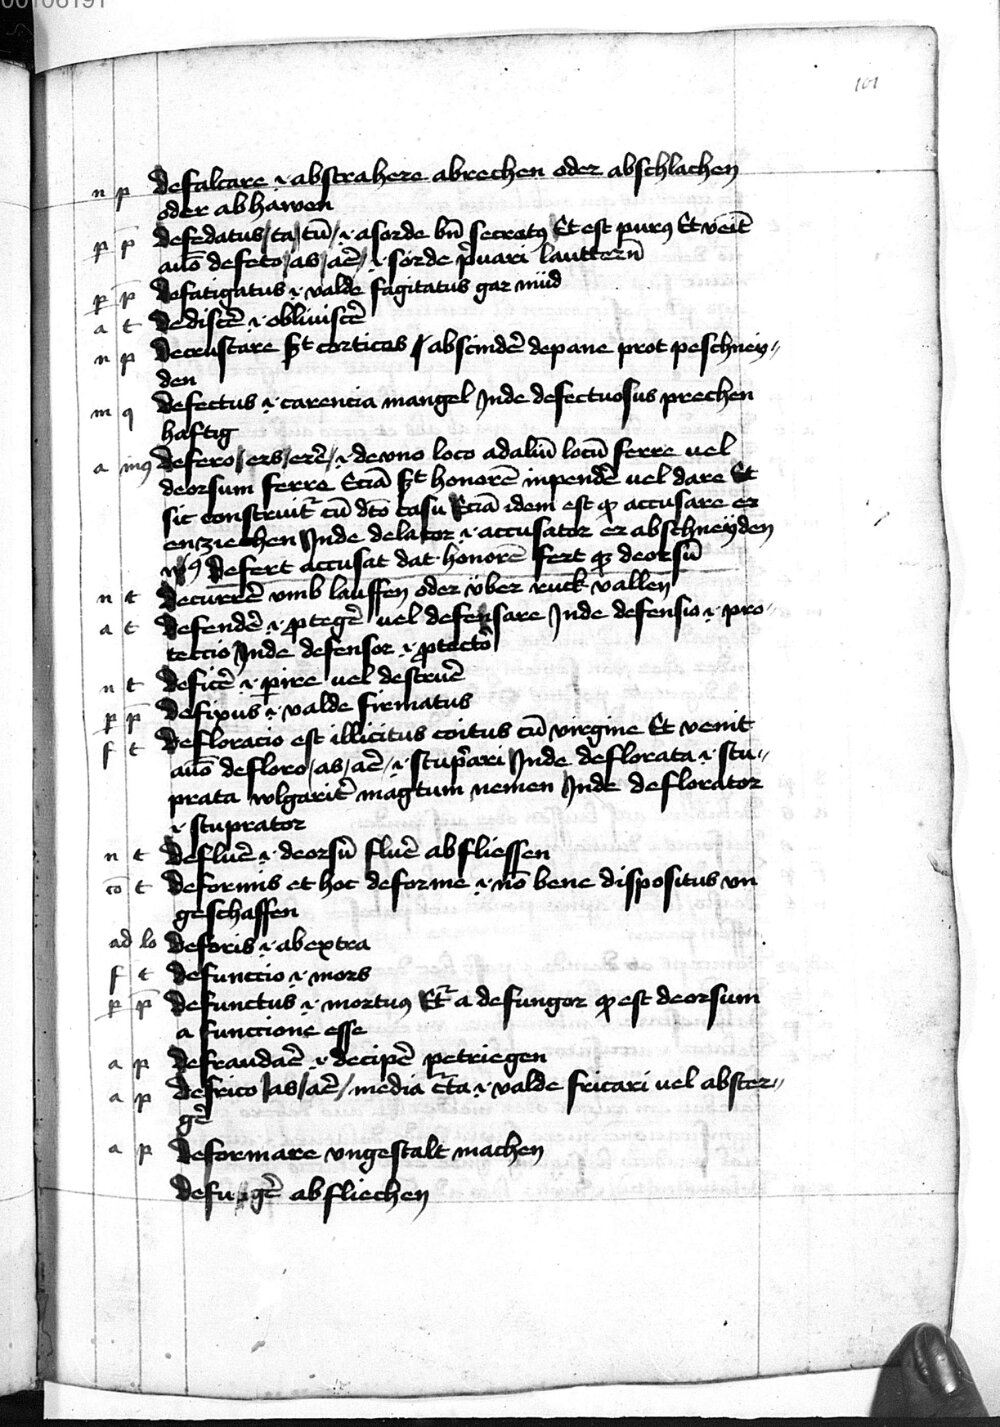 00106191
101
n p defalcare .i. abstrahere abrechen oder abschlachen
oder abhawen
p̱ p̄ defedatus / ta / tū / .i. a sorde bn̄ secretꝰ Et est purꝰ Et veīt
auō defeto / as / aē / .i. sorde pͥuari lautternͩ
p̱ p̄ defatigatus .i. valde fagitatus gar müd
a t dediscē͛ .i. obliuiscē͛
n p decrustare st̄ corticos / abscindē͛ de pane prot peschney〃
den
m q defectus .i. carencia mangel Inde defectuosus prechen
haftig
a inꝰ defero / ers / erē / .i. de vno loco ad aliū locū ferre uel
deorsum ferre Eciā st̄ honorē inpendē͛ uel dare Et
sic construit͛ cū dt̄o casu Eciā idem est qͦ accusare er
enziechen Inde delator .i. accusator er abschneyden
defert accusat dat honorē fert qꝫ deorsū
n t decurrē͛ vmb lauffen oder v̈ber ruck vallen
a t defendē͛ .i. ꝓtegē͛ uel defensare Inde defensio .i. pro〃
teccio Inde defensor .i. ꝓtector
n t deficē͛ .i. ꝑire uel destruē͛
p̱ p̄ defixus .i. valde firmatus
f t defloracio est illicitus coitus cū virgine Et venit
auō defloro / as / aē / .i. stupͣri Inde deflorata .i. stu〃
prata wlgarit͛ magtum nemen Inde deflorator
.i. stuprator
n t defluē͛ .i. deorsū fluē͛ abfliessen
cō t deformis et hoc deforme .i. nō bene dispositus vn
geschaffen
ad lo deforis .i. ab extra
f t defunccio .i. mors
p̱ p̄ defunctus .i. mortuꝰ Et͛ a defungor qͦ est deorsum
a funccione esse
a p defraudaē .i. decipē͛ petriegen
a p defrico / as / aē / media c̄ta .i. valde fricari uel abster〃
gē͛
a p deformare vngestalt machen
defugē͛ abfliechen